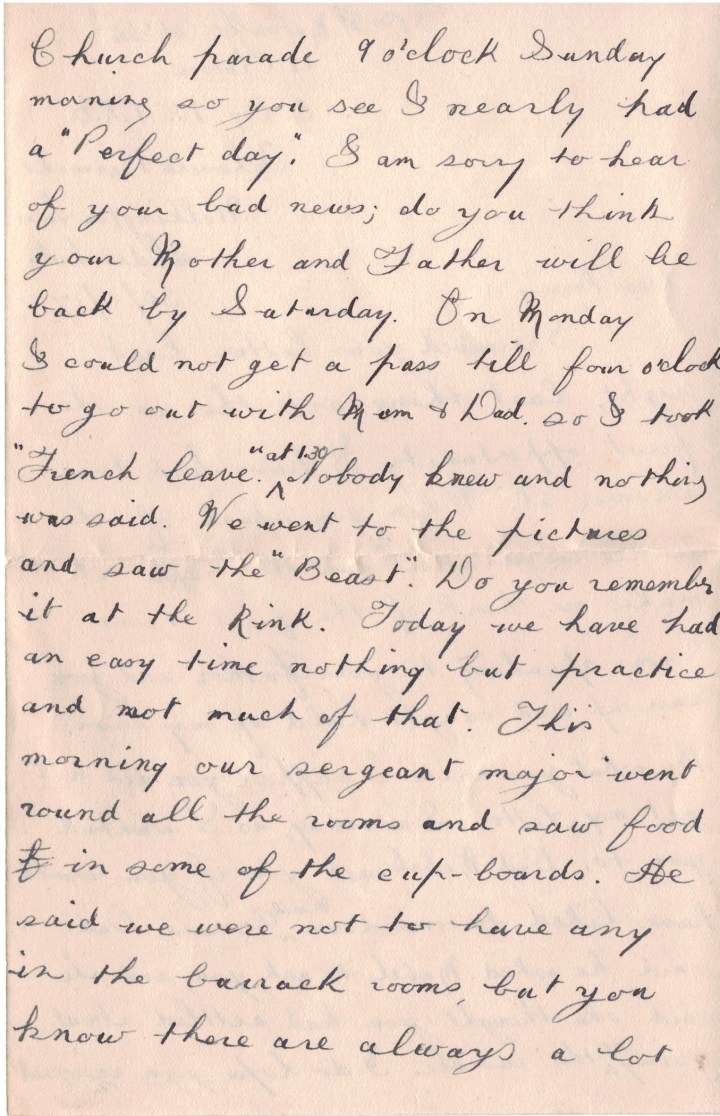 Church parade 9 o'clock Sunday
morning so you see I nearly had
a "Perfect day". I am sorry to hear
of your bad news; do you think
your Mother and Father will be
back by Saturday. On Monday
I could not get a pass till four o'clock
to go out with Mum & Dad. so I took
"French leave." at 1.30 Nobody knew and nothing
was said. We went to the pictures
and saw the "Beast". Do you remember
it at the Rink. Today we have had
an easy time nothing but practice
and not much of that. This
morning our sergeant major went
round all the rooms and saw food
in some of the cup-boards. He
said we were not to have any
in the barrack rooms, but you
know there are always a lot